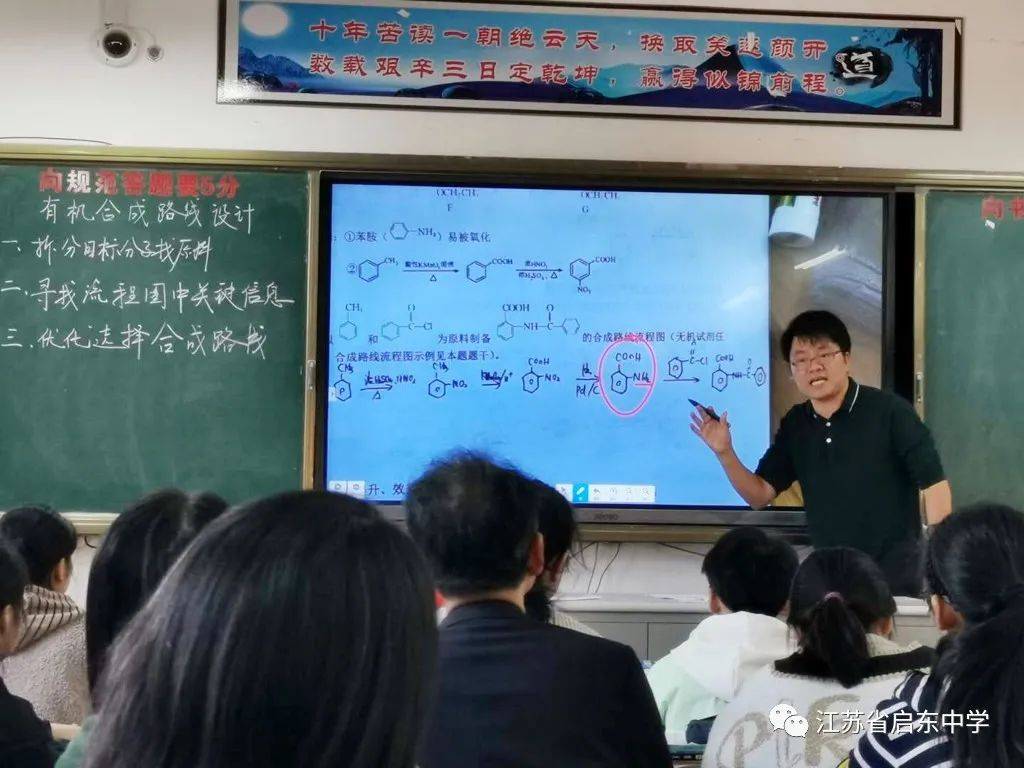 十年苦读一朝绝云天，换取笑逐颜开
数载艰辛三日定乾坤，赢得似锦前程。
道
向规范答题要5分
有机合成路线设计
一、拆分目标分子找原料
二、寻找流程图中关键信息
三、优化选择合成路线
OCH₂CH₃ OCH₂CH₃
F G
①苯胺（ NH₂）易被氧化
② CH₃ 酸性KMnO₄溶液 △ COOH 浓HNO₃ 浓H₂SO₄，△ COOH NO₂
CH₃ 和 O Cl 为原料制备 COOH NH C O 的合成路线流程图（无机试剂任
合成路线流程图示例见本题题干）。
CH₃ 浓H₂SO₄,HNO₃ △ CH₃ NO₂ H⁺ COOH NO₂ H₂ Pd/C COOH NH₂ O C-Cl COOH NH-C O
升、效
向书
江苏省启东中学